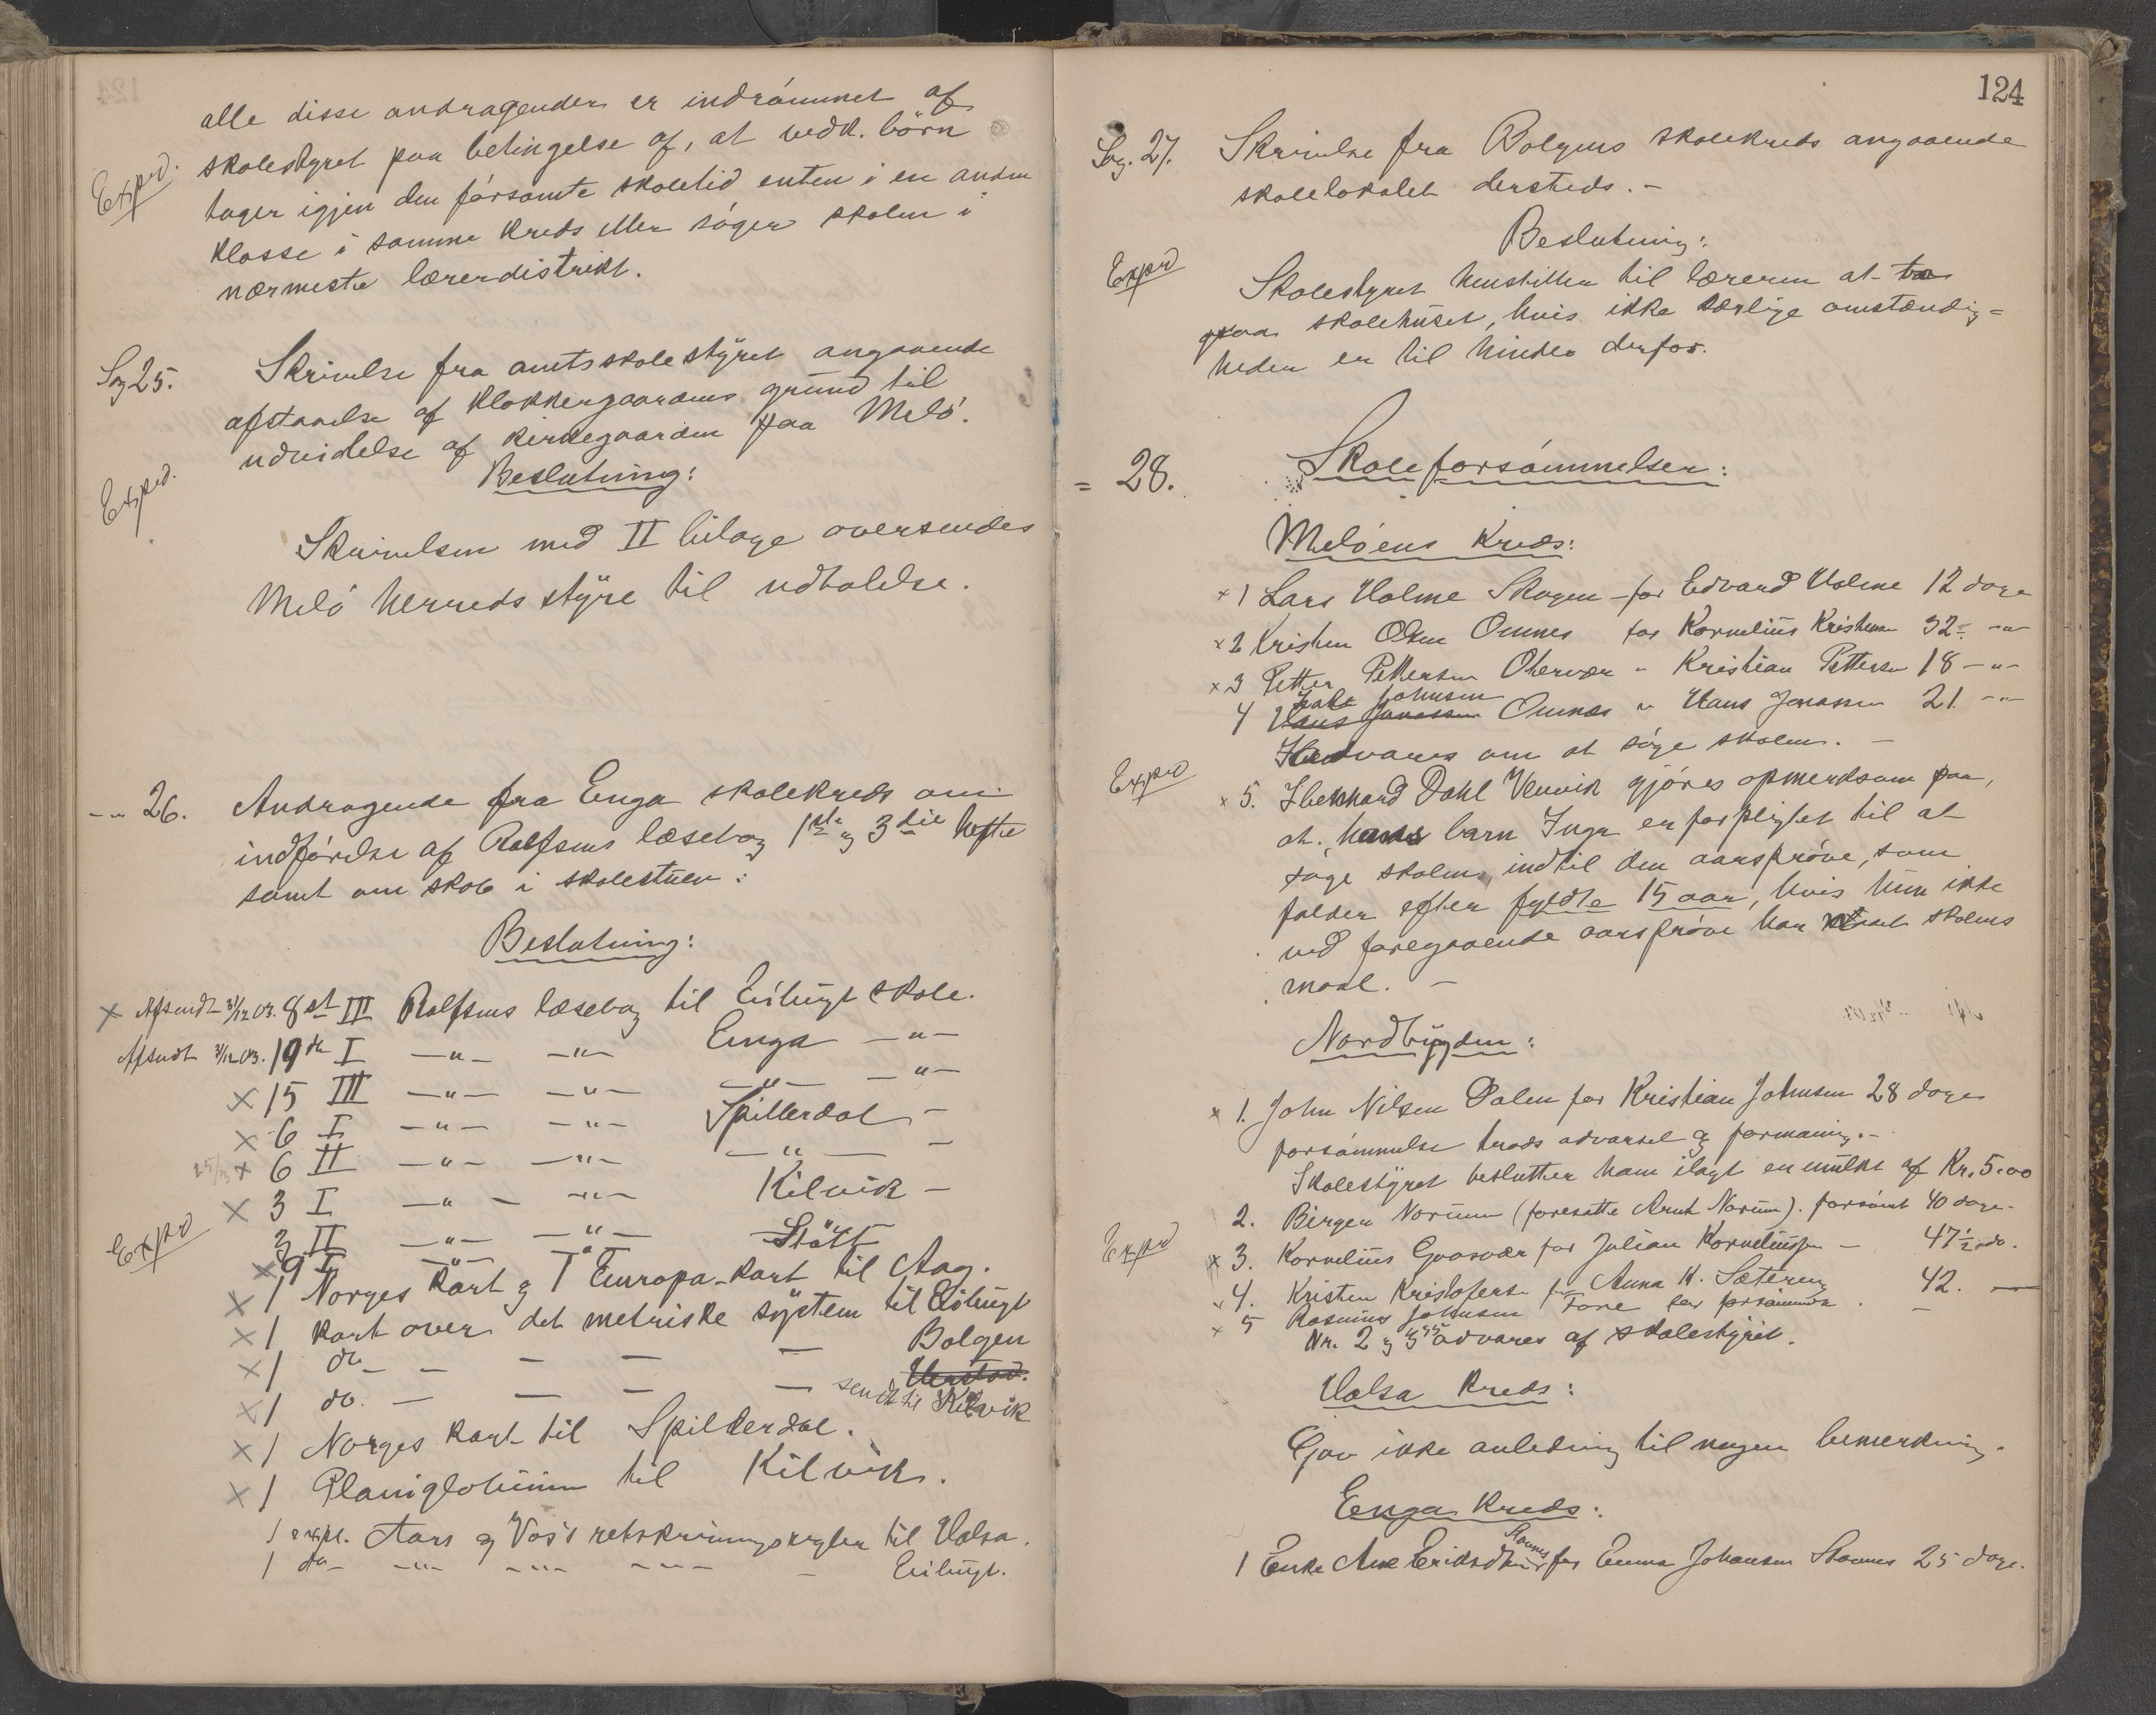 alle disse andragender er indrømmet af
skolestyret paa betingelse af, at vedk. börn
Exped.
tager igjen den forsömte skoletid enten i en anden
klasse i samme kreds eller söger skolen i
nærmeste lærerdistrikt.
Sag 25.
Skrivelse fra amtsskolestyret angaaende
afstaaelse af Klokkergaardens grund til
udvidelse af kirkegaarden paa Melö.
Exped.
Beslutning:
Skrivelsen med II bilage oversendes
Melö herredsstyre til udtalelse.
-"- 26.
Andragende fra Enga skolekreds om
indförelse af Rolfsens læsebog 1ste og 3die hefte
samt om skab i skolestuen:
Beslutning:
x Afsendt 31/12 03. 8 st III Rolfsens læsebog til Eilingt skole.
Afsendt 31/12 03. 19 do I -"- -"- Enga -"-
x 15 III -"- -"- -"- -"-
x 6 I -"- -"- Spilderdal -
x 6 II -"- -"- -"- -
x 3 I -"- -"- Kilvik -
Exped
3 II -"- -"- Stött
x 9 I -"- -"-
x 1 Norges kart og 1 Europa-kart til Aag.
x 1 kart over det metriske system til Eilingt
x 1 do - - - - Bolgen
x 1 do. - - - - sendt til Kilvik
x 1 Norges kart til Spilderdal.
x 1 Planiglobium til Kilvik.
1 expl. Aars og Vos's retskrivningsregler til Valsa.
1 do -"- -"- -"- - Eilingt.
124
Sag. 27.
Skrivelse fra Bolgens skolekreds angaaende
skolelokalet dersteds. -
Beslutning:
Exped
Skolestyret henstiller til læreren at ta
paa skolehuset, hvis ikke særlige omstændig=
heder er til hinder derfor.
= 28.
Skoleforsömmelser:
Melöens Kreds:
x 1 Lars Holme Skogen - for Edvard Holme 12 dage
x 2 Kristen Olsen Ornes for Kornelius Kristensen 32 -"-
x 3 Petter Pettersen Oterver " Kristian Pettersen 18 -"-
Johnsen
4 Hans Jonassen Ornæs " Hans Jonassen 21 -"-
advares om at söge skolen. -
Exped
x 5. Dahl Venvik gjöres opmerksom paa,
at hans barn Inga er forpligtet til at
söge skolen indtil den aarspröve, som
falder efter fyldte 15 aar, hvis hun ikke
ved foregaaende aarspröve har naaet skolens
maal. -
Nordbygden:
x 1. John Nilsen Dalen for Kristian Johnsen 28 dages
forsömmelse trods advarsel og formaning. -
Skolestyret beslutter ham ilagt en mulkt af Kr. 5.00
2. Birger Norum (foresatte Arnt Norum). forsömt 40 dage.
Exped
x 3. Kornelius Gvasvær for Julian Korneliussen - 47½ do.
x 4. Kristen Kristofersen for Anna K. Sætereng 42. -
x 5 Rasmus Johnsen Fore
Nr. 2 og 3 4 5 advares af skolestyret.
Valsa Kreds:
Gav ikke anledning til nogen bemerkning.
Enga Kreds:
Stavnes
1 Enke Ane Eriksdtr for Emma Johansen Stavnes 25 dage.